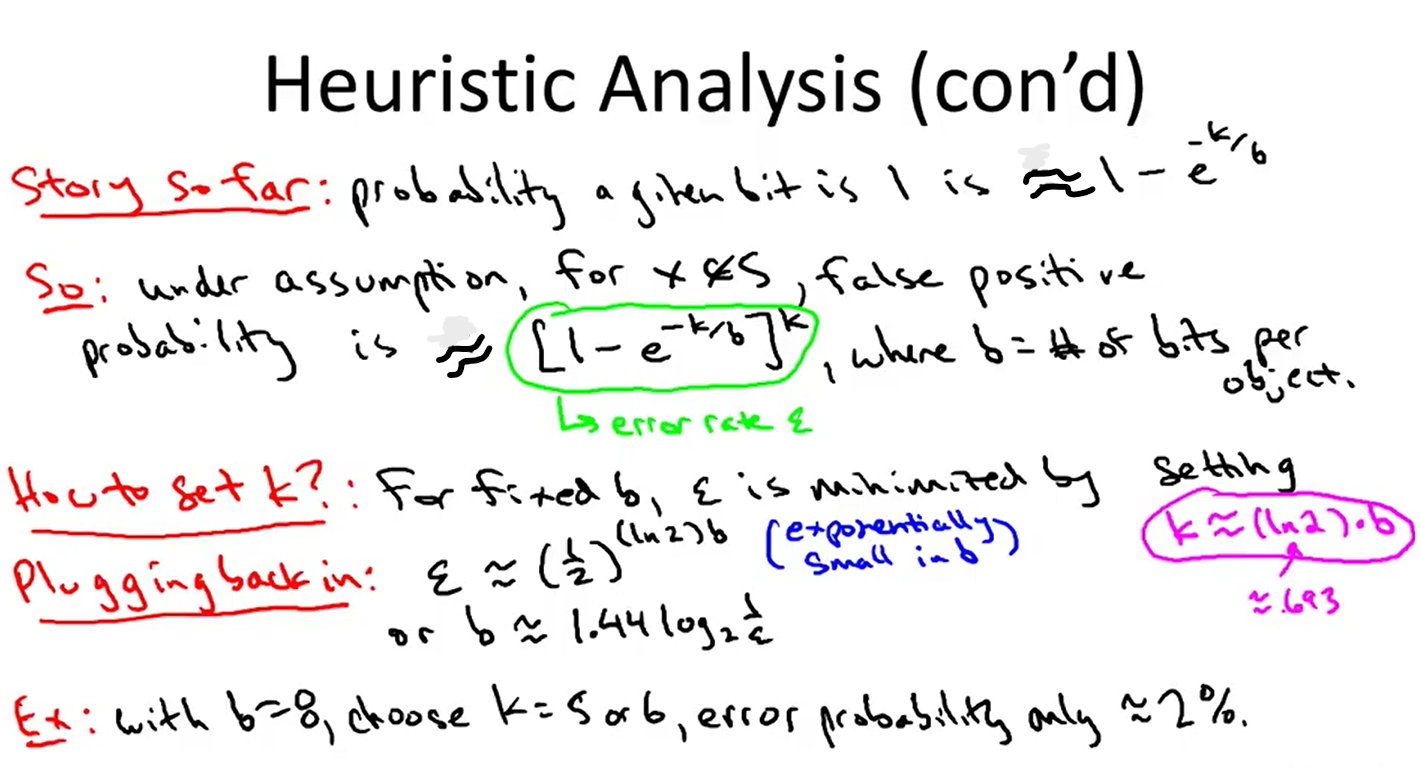 Heuristic Analysis (con’d)
Story So far: probability a given bit is 1 is ≈ 1 - e^{-k/b}
So: under assumption, for x ∉ S, false positive
probability is ≈ [1 - e^{-k/b}]^k, where b = # of bits per
object.
↳ error rate ε
How to set k?: For fixed b, ε is minimized by setting
k ≈ (ln 2)·b
≈ .693
Plugging back in: ε ≈ (1/2)^{(ln 2)b} (exponentially
small in b)
or b ≈ 1.44 log₂ 1/ε
Ex: with b=8, choose k = 5 or 6, error probability only ≈ 2%.